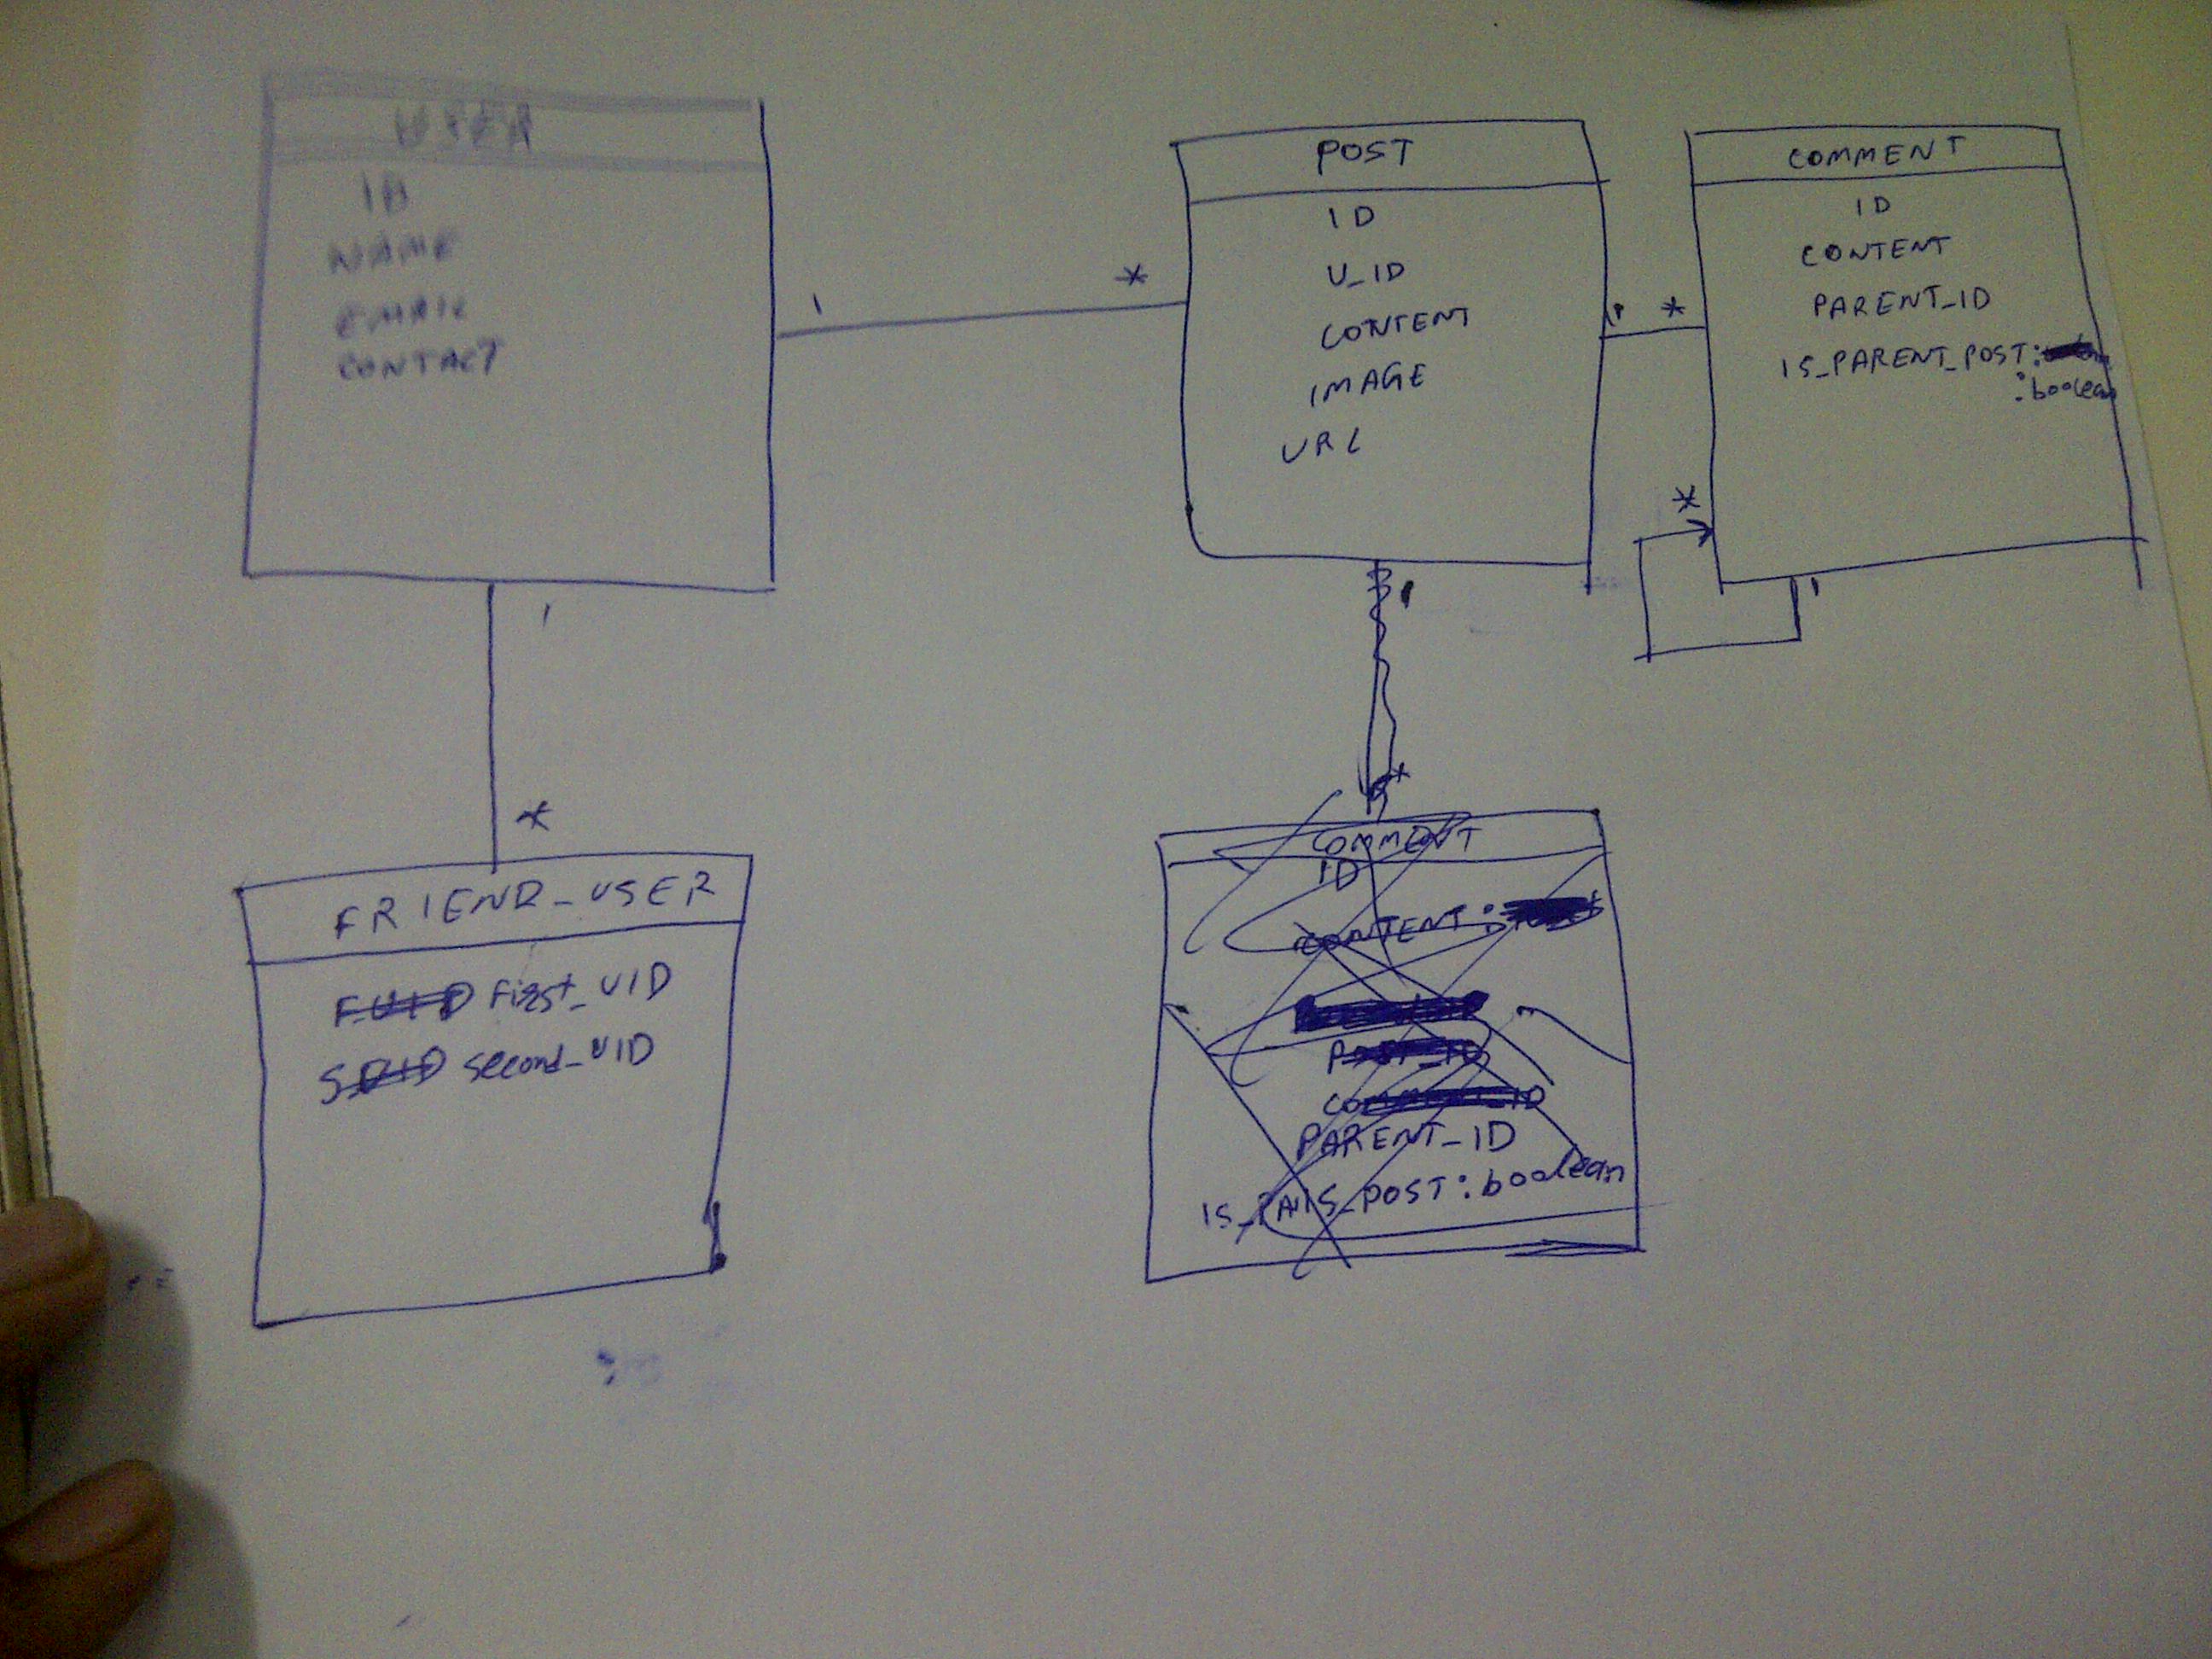 USER
ID
NAME
EMAIL
CONTACT
1
*
POST
ID
U_ID
CONTENT
IMAGE
URL
1 *
COMMENT
ID
CONTENT
PARENT_ID
IS_PARENT_POST:
:boolean
*
1
1
*
FRIEND_USER
FUID first_UID
SUID second_UID
1
*
COMMENT
ID
CONTENT :
POST_ID
COMMENT_ID
PARENT_ID
POST : boolean